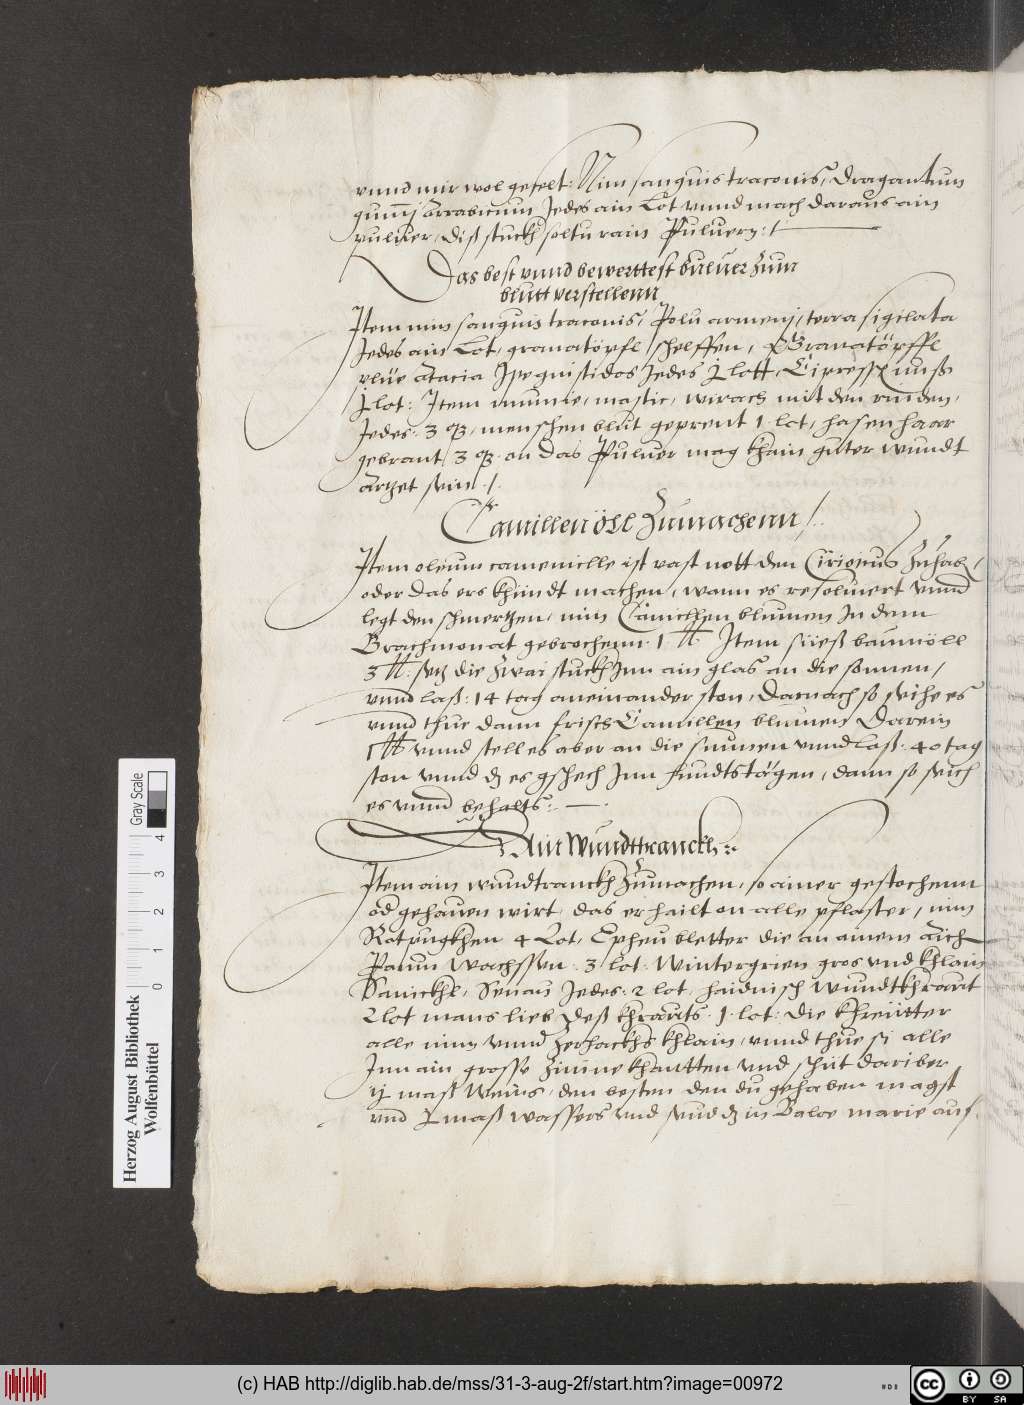 vnnd mir wol gefelt: Nim sanguis traconis, Dragantum
gummj arrabicum Jedes ain Lot vnnd mach daraus ain
puluer, diß stuckh soltu rain Puluern:
Das best vnnd bewerttest Puluer Zum
blutt verstellenn
Item nim sanguis traconis, Polu armenj, terra sigilata
Jedes ain Lot, granatöpfl schelffen, Granatöpffl
plüe atacia Ipoquistidos Jedes lott, Cipressn nuß
lot: Item mumie, mastic, wirach mit den rinden,
Jedes: 3 q, menschen blut geprent 1 lot, hasen haar
gebrant 3 q on das Puluer mag khain guter wundt
artzet sein
Camillen öll Zumachenn
Item oleum camemille ist vast nott den Cirigicus Zuhab,
oder das ers khundt machen, wann es resoluiert vnnd
legt den schmertzen, nim Camillen blumen In dem
Brachmonat gebrochenn 1 lb: Item süeß baumöll
3 lb: setz die Zwai stuckh Inn ain glas an die sonnen,
vnnd laß: 14 tag aneinander sten, Darnach so seihe es
vnnd thue dann frisch Camillen blumen Darein
1 lb vnnd stell es aber an die sunnen vnnd laß: 40 tag
sten vnnd dz es gschech Inn hundtstägen, dann so seich
es vnnd behalts:
Ain Wundttranckh
Item ain wundtranckh Zumachen, so ainer gestochenn
od gehauen wirt, das er hailt on alle pflaster, nim
Ratpugkhen 4 Lot, Epheu bletter die an ainem aich
Paum Wachssen 3 lot: Wintergrien gros vnd khlain
Sanickhl, Senau Jedes: 2 lot, haidnisch wundtkhraut
2 lot maus lieb deß khrauts 1 lot: die khreutter
alle nim vnnd Zerhackhs khlain, vnnd thue si alle
Inn ain grosse Zinine khantten vnd schüt dariber
ij maß Weins, den besten den du gehaben magst
vnd maß wassers vnd seud dz in Balne marie aus,
Herzog August Bibliothek
Wolfenbüttel
0 1 2 3 4
Gray Scale
(c) HAB http://diglib.hab.de/mss/31-3-aug-2f/start.htm?image=00972
cc BY SA